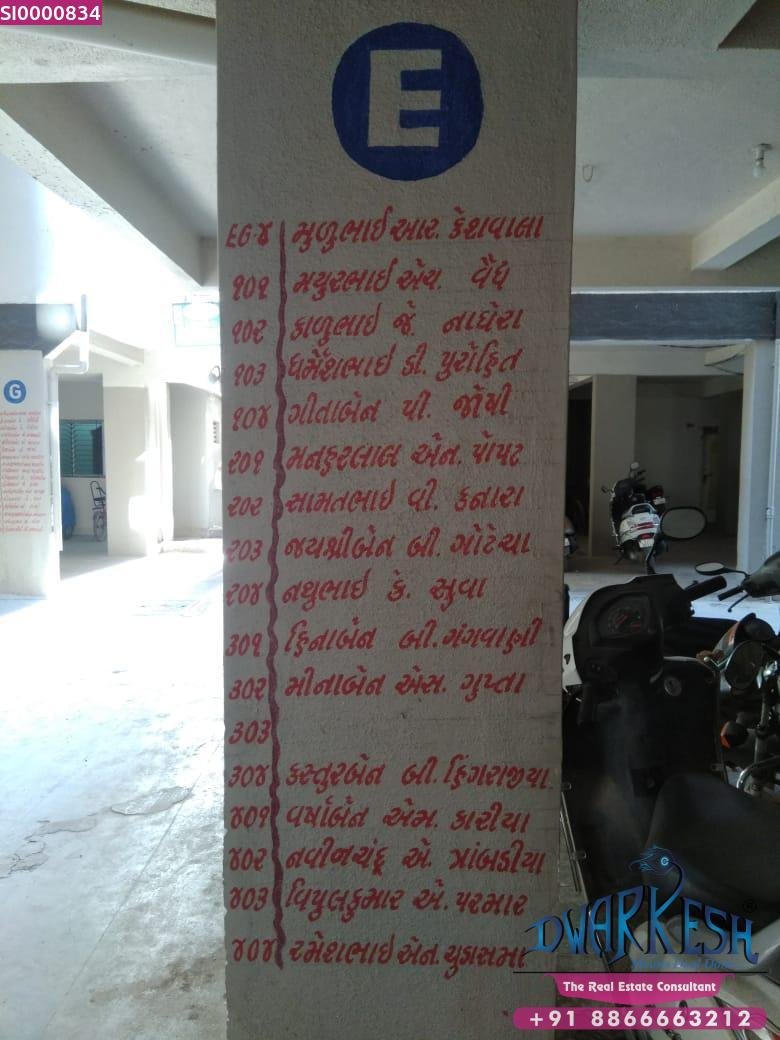 SI0000834
E
EG-૪ મુળુભાઈ આર. કેશવાલા
૧૦૧ મયુરભાઈ એચ. વૈધ
૧૦૨ કાળુભાઇ જે. નાઘેરા
૧૦૩ ધર્મેશભાઇ ડી. પુરોહિત
૧૦૪ ગીતાબેન પી. જોષી
૨૦૧ મનહરલાલ એન. પોપટ
૨૦૨ સામતભાઇ વી. કનારા
૨૦૩ જયશ્રીબેન બી. ગોટેચા
૨૦૪ નથુભાઇ કે. સુવા
૩૦૧ હિનાબેન બી. ગંગવાણી
૩૦૨ મીનાબેન એસ. ગુપ્તા
૩૦૩
૩૦૪ કસ્તુરબેન બી. હિંગરાજીયા
૪૦૧ વર્ષાબેન એમ. કારીયા
૪૦૨ નવીનચંદ્ર એ. ત્રાંબડીયા
૪૦૩ વિપુલકુમાર એ. પરમાર
૪૦૪ રમેશભાઇ એન. ચુડાસમા
G
DWARKESH
The Real Estate Consultant
+91 8866663212